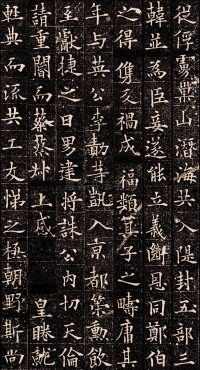 從俘巢山潛海共入隄封五部三
韓並為臣妾遂能立義斷恩同鄭伯
之得儁反禍成福類箕子之疇庸其
年与英公李勣等凱入京都策勳飲
至獻捷之日男建將誅公內切天倫
請重闇而蔡蔡叔上感 皇睠就
輕典而流共工友悌之極朝野斯尚